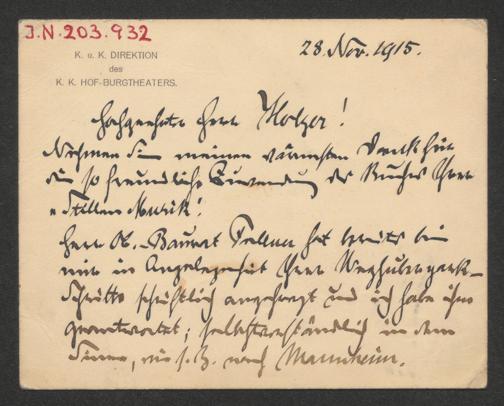 J.N. 203.932
K. u. K. DIREKTION
des
K. K. HOF-BURGTHEATERS.
28. Nov. 1915.
Hochgeehrter Herr Holzer!
Nehmen Sie meinen wärmsten Dank für
die so freundliche Zuwendung des Buches Ihrer
"Stillen Musik!
Herr Ob.-Baurat hat bereits bei
mir in Angelegenheit Ihrer
Schritte schriftlich angefragt und ich habe ihm
geantwortet; selbstverständlich in dem
Sinne, wie s. Z. nach Mannheim.